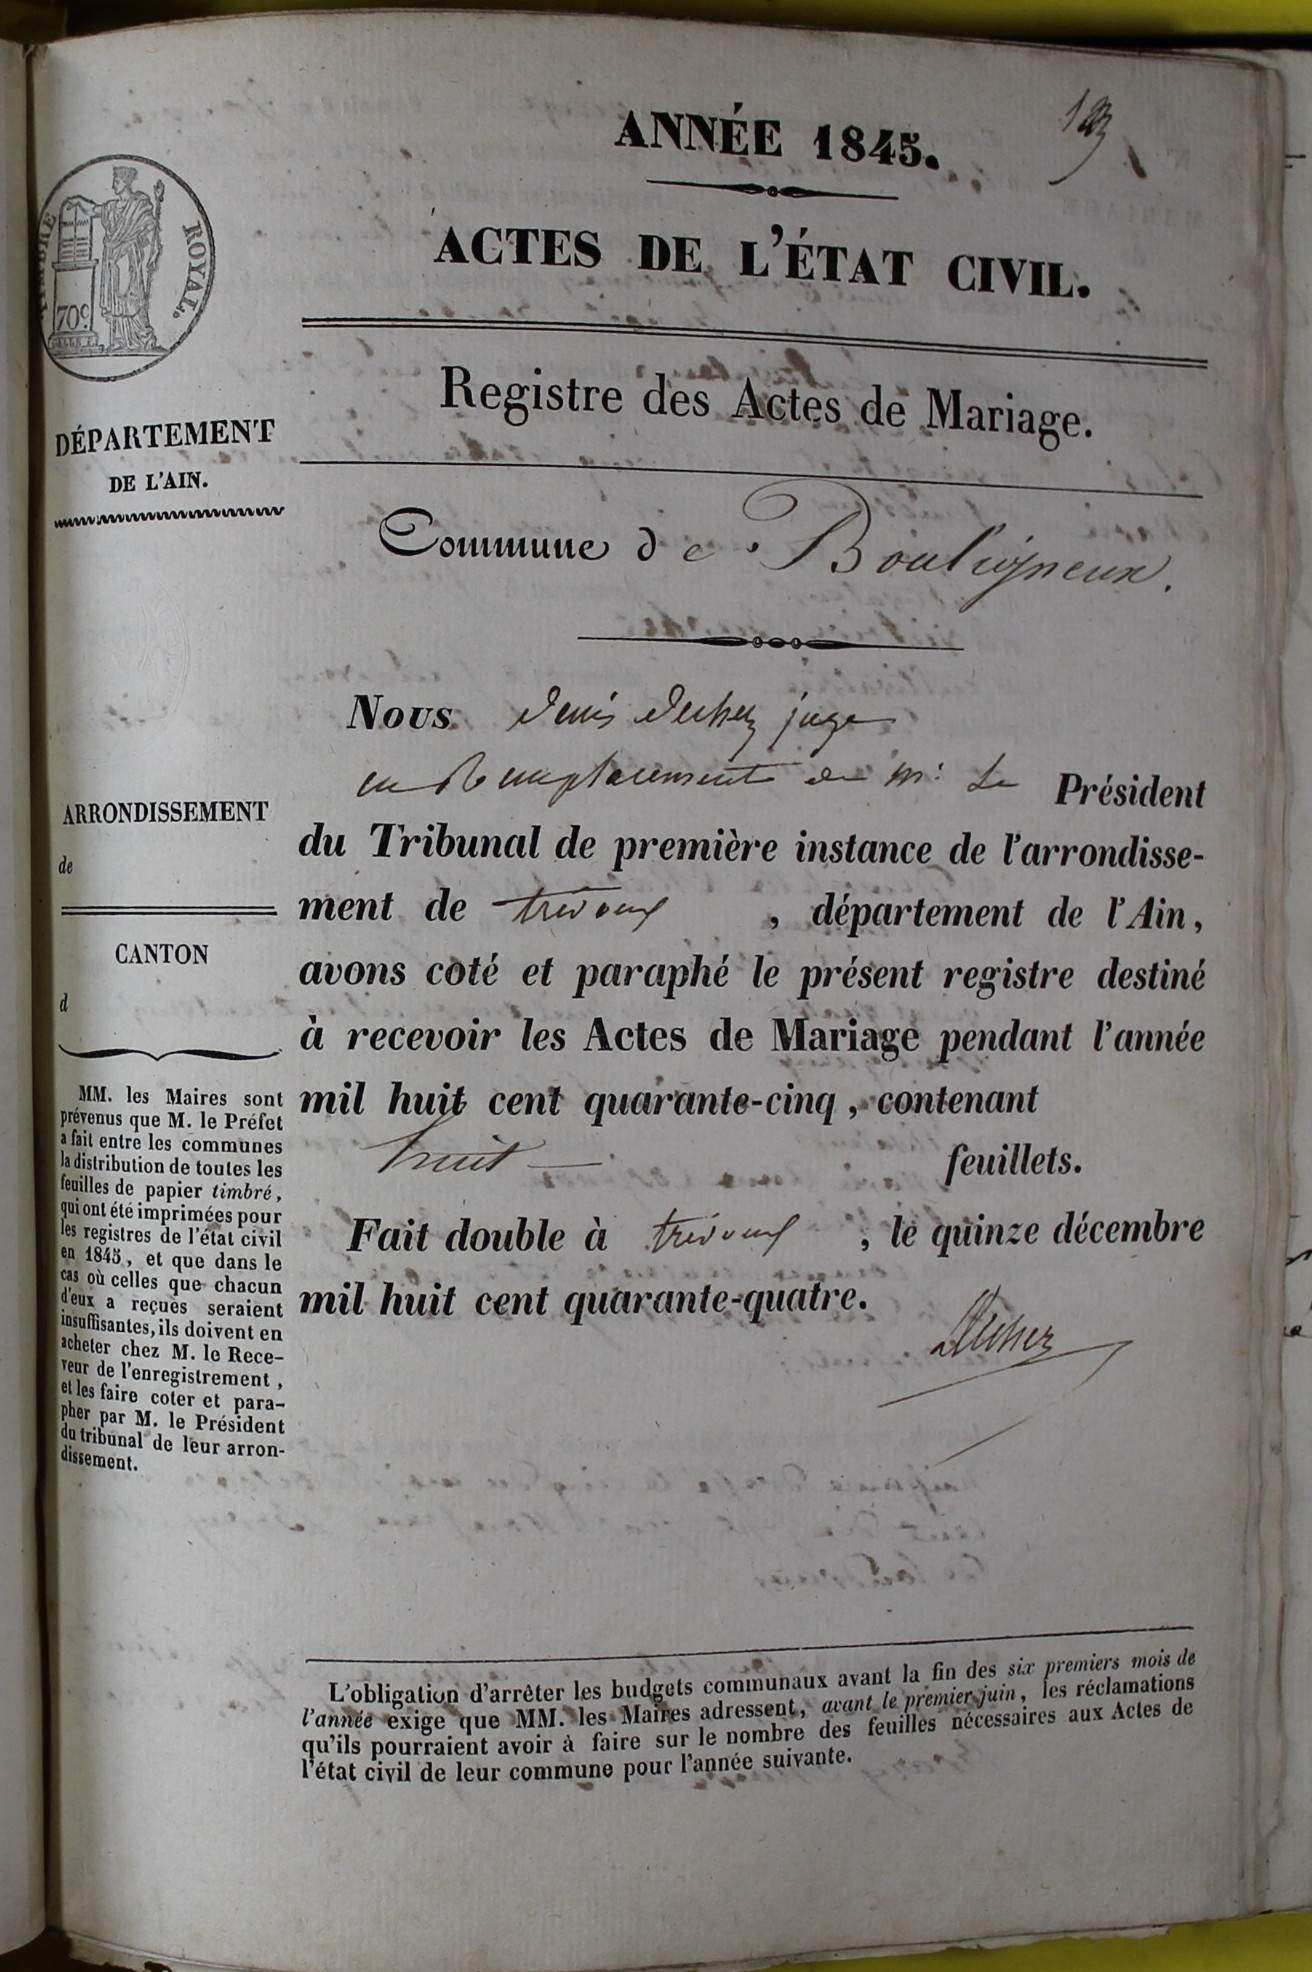 ANNÉE 1845.
ACTES DE L'ÉTAT CIVIL.
TIMBRE ROYAL.
70c
Registre des Actes de Mariage.
DÉPARTEMENT
DE L'AIN.
Commune de Bouligneux.
Nous Denis juge
en Remplacement de Mr Le Président
du Tribunal de première instance de l'arrondisse-
ment de trévoux, département de l'Ain,
avons coté et paraphé le présent registre destiné
à recevoir les Actes de Mariage pendant l'année
mil huit cent quarante-cinq, contenant
huit feuillets.
Fait double à trévoux, le quinze décembre
mil huit cent quarante-quatre.
ARRONDISSEMENT
de
CANTON
d
MM. les Maires sont
prévenus que M. le Préfet
a fait entre les communes
la distribution de toutes les
feuilles de papier timbré,
qui ont été imprimées pour
les registres de l'état civil
en 1845, et que dans le
cas où celles que chacun
d'eux a reçues seraient
insuffisantes, ils doivent en
acheter chez M. le Rece-
veur de l'enregistrement,
et les faire coter et para-
pher par M. le Président
du tribunal de leur arron-
dissement.
L'obligation d'arrêter les budgets communaux avant la fin des six premiers mois de
l'année exige que MM. les Maires adressent, avant le premier juin, les réclamations
qu'ils pourraient avoir à faire sur le nombre des feuilles nécessaires aux Actes de
l'état civil de leur commune pour l'année suivante.